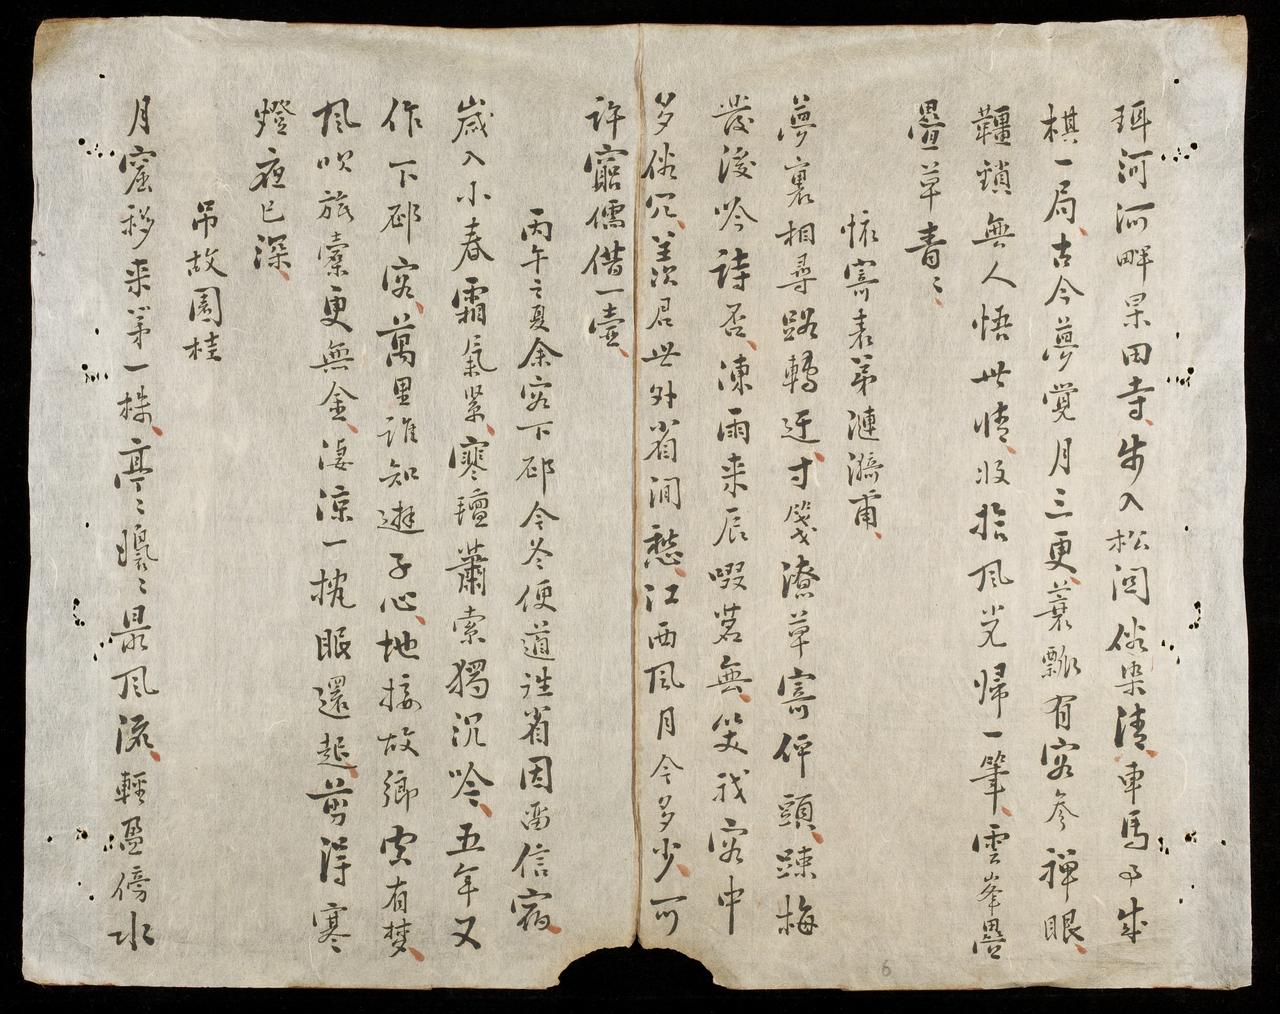 珥河河畔杲田寺、步入松関俗染清、車馬事成
棋一局、古今夢覚月三更、蓑瓢有客参禅眼、
韁鎖無人悟世情、收拾風光帰一筆、雲峯疊
疊草青〻
懐寄表弟漣漪甫、
夢裏相尋路轉迂、寸箋潦草寄伻頭、踈梅
發後吟詩否、凍雨来辰啜茗無、笑我客中
多俗冗、羨君世外省閒愁、江西風月今多少、可
許窮儒借一壺、
丙午之夏余客下邳今冬便道谁省因留信宿、
歲入小春霜氣紧、寒壇蕭索獨沉吟、五年又
作下邳客、萬里誰知遊子心、地接故鄉宵有梦、
風吹旅橐更無金、凄涼一枕眠還起、剪得寒
燈夜已深、
吊故園桂
月窟移来第一株、亭〻裊〻最風流、輕盈傍水